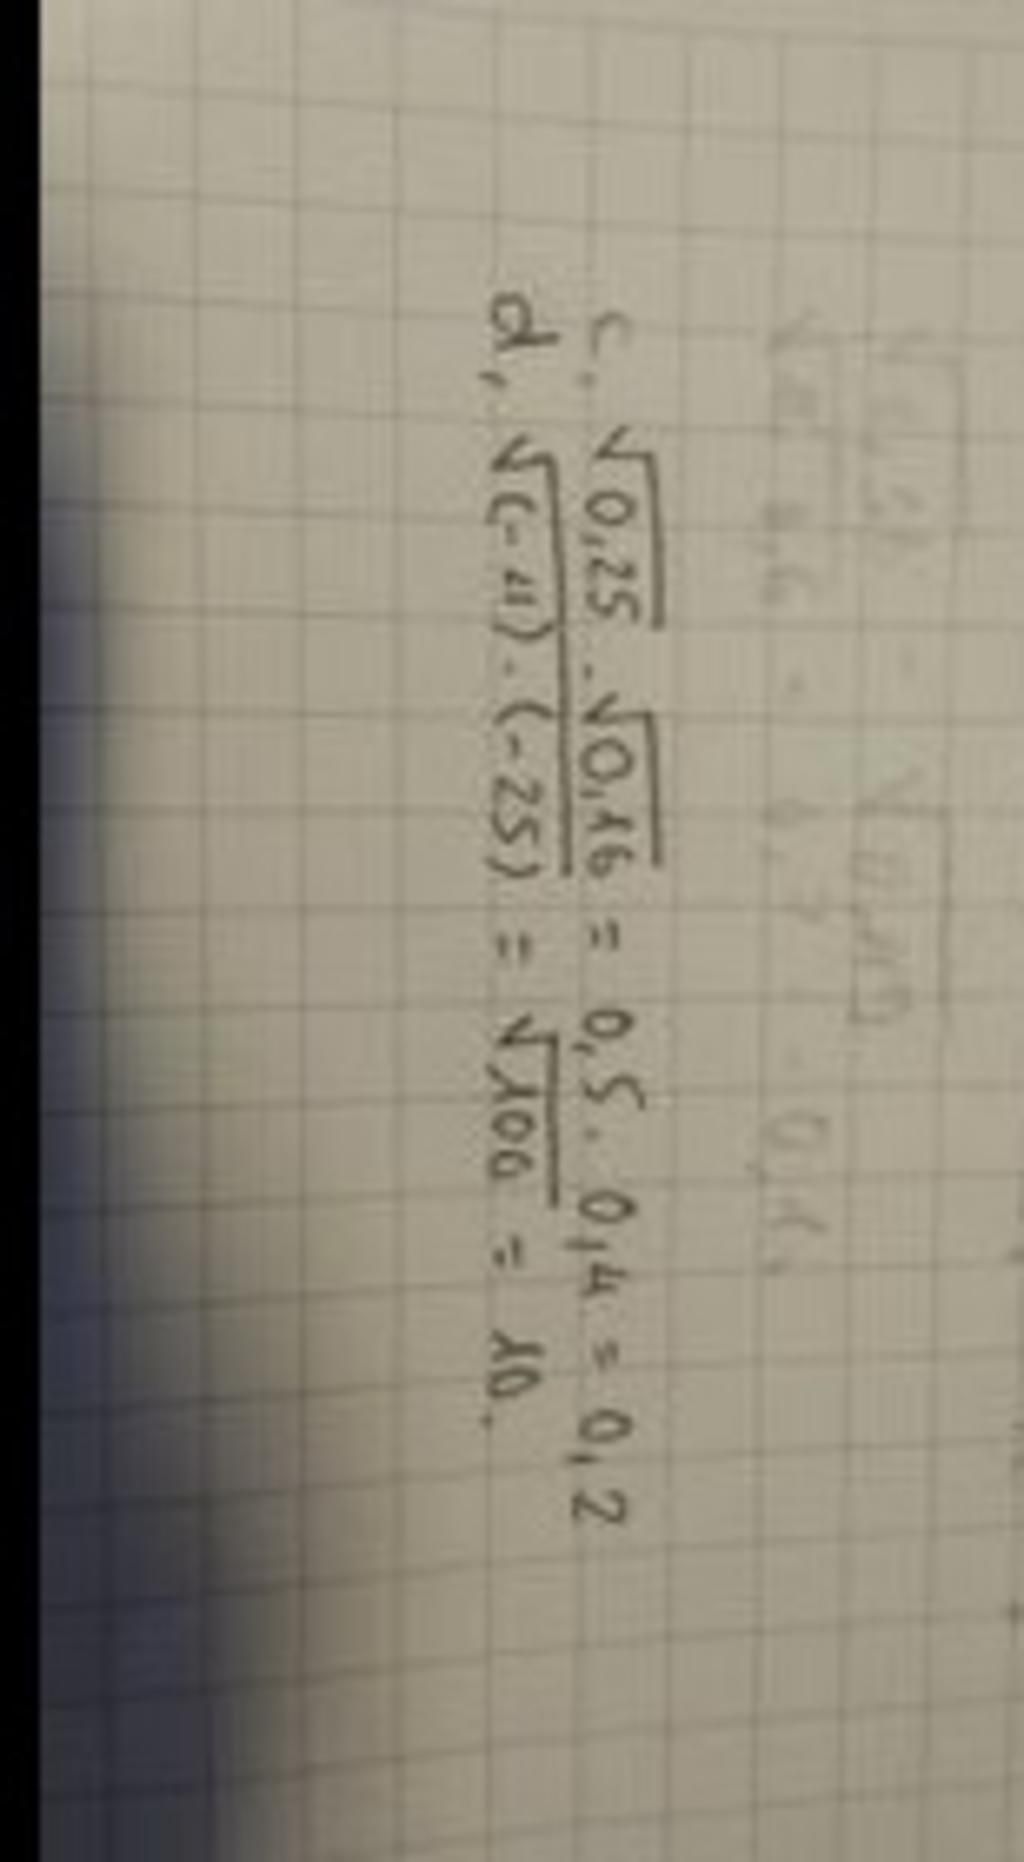 c. √0,25 . √0,16 = 0,5 . 0,4 = 0,2
d, √(-4) . (-25) = √100 = 10.